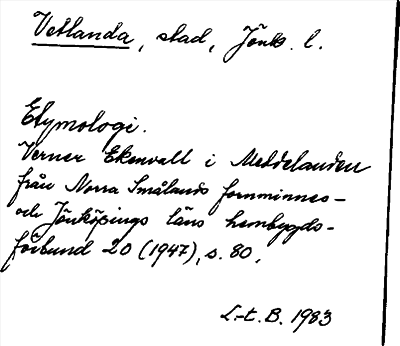 Vetlanda, stad, Jönk. l.
Etymologi.
Verner Ekenvall i Meddelanden
från Norra Smålands fornminnes-
och Jönköpings läns hembygds-
förbund 20 (1947), s. 80.
L-t. B. 1983